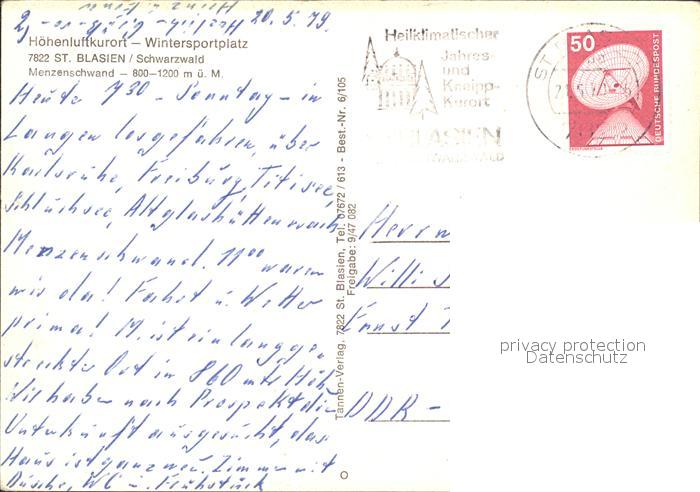 20. 5. 79.
Höhenluftkurort – Wintersportplatz
7822 ST. BLASIEN / Schwarzwald
Menzenschwand – 800–1200 m ü. M.
Heute 730 - Sonntag - in
Langen losgefahren, über
Karlsruhe, Freiburg, Titisee,
Schluchsee, Altglashütten nach
Menzenschwand. 11°° waren
wir da! Fahrt u. Wetter
prima! M. ist ein langge-
streckter Ort in 860 mtr Höhe
Wir haben nach Prospekt die
Unterkunft ausgesucht, das
Haus ist ganz neu. Zimmer mit
Dusche, WC u. Frühstück
Tannen-Verlag, 7822 St. Blasien, Tel. 07672 / 613 - Best.-Nr. 6/105
Freigabe: 9/47 082
Heilklimatischer
Jahres-
und
Kneipp-
Kurort
BLASIEN
50
DEUTSCHE BUNDESPOST
Herrn
Willi
Ernst
DDR -
privacy protection
Datenschutz